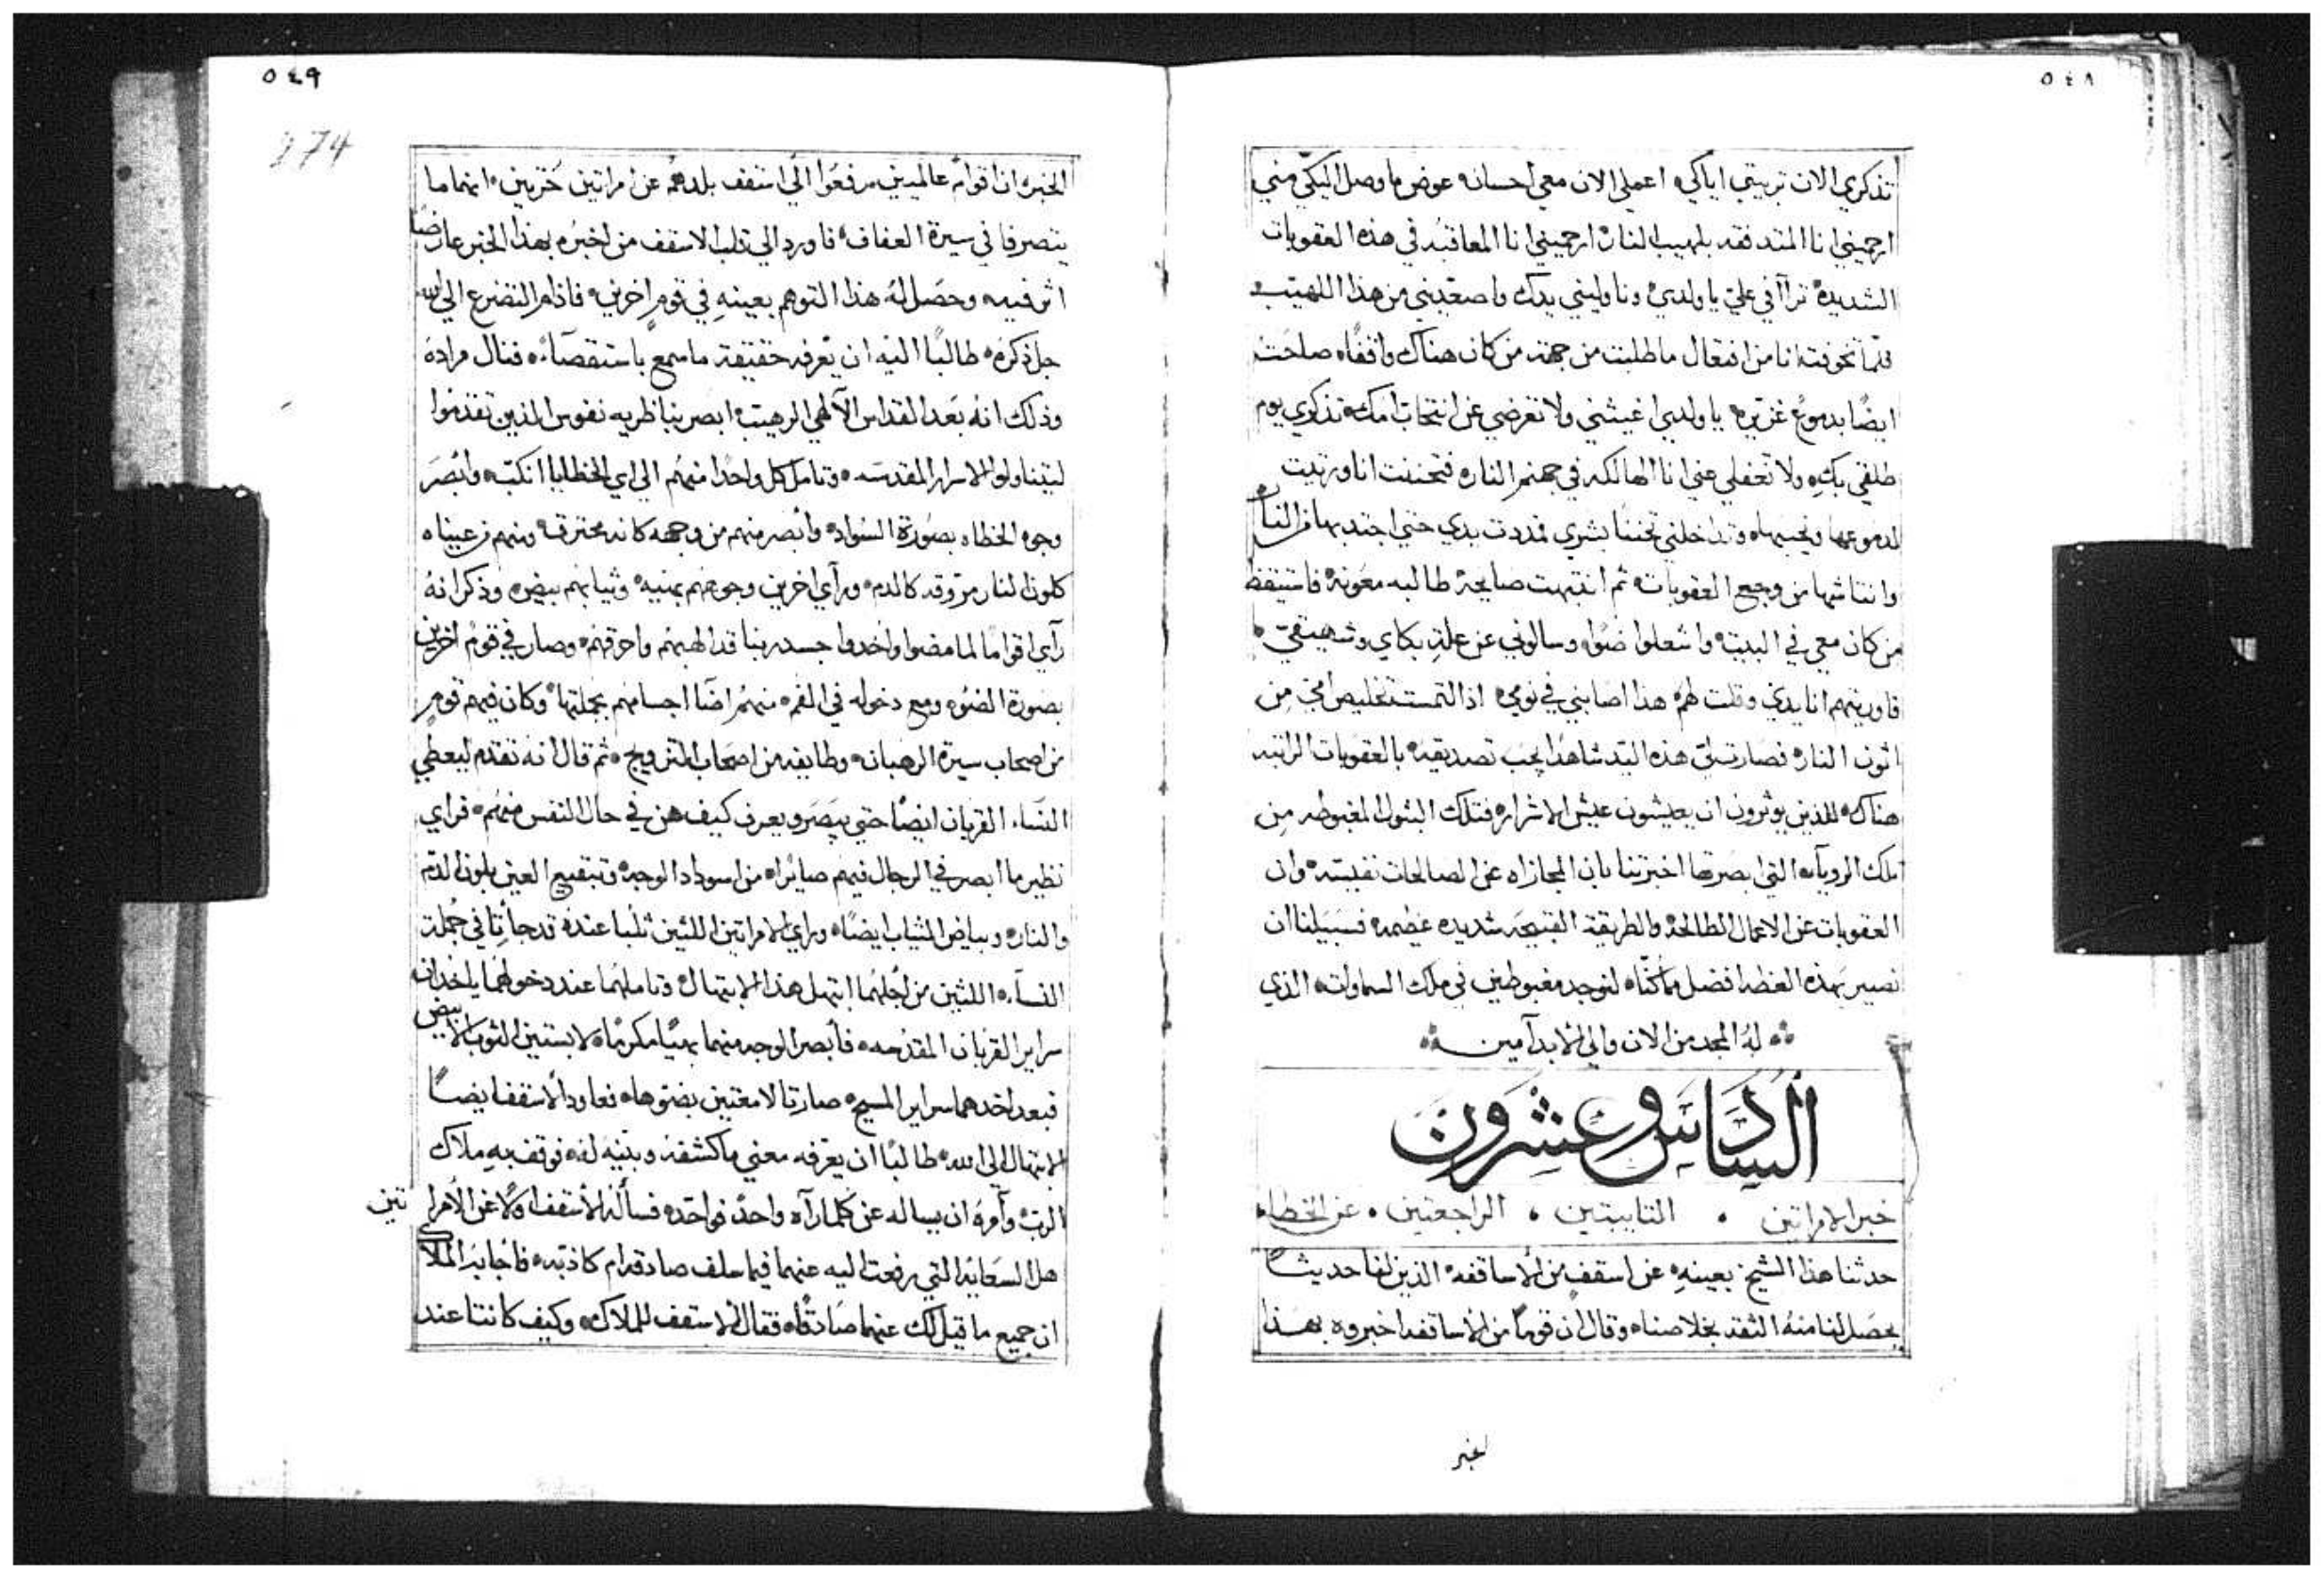 ٥٤٨
تذكري الان تربيتي اياكي، اعملي الان معي احسانه عوض ما وصل اليكي مني
ارحميني انا المتدفقه بلهيب النار، ارحميني انا المعاقبه في هذه العقوبات
الشديده، تراآفي علي يا ولدي، وناوليني يدك واصعديني من هذا اللهيب،
فلما تخوفت انا من افتعال ما طلبت من جهة من كان هناك واقفًا، صاحت
ايضًا بدموع غزيره، يا ولدي اغيثيني ولا تعرضي عن انتحاب امك، تذكري يوم
طلقي بكِ، ولا تغفلي عني انا الهالكه في جهنم النار، فتحننت انا ورثيت
لدموعها ونحيبها، وتداخلني تحننا بشري فمددت يدي حتي اجتدبها من النار
وانتاشها من وجع العقوبات، ثم انتبهت صايحة طالبه معونة، فاستيقظ
من كان معي في البيت، واشعلوا ضوًا، وسالوني عن علة بكاي وشهيقي،
فاوريتهم انا يدي وقلت لهم هذا اصابني في نومي، اذ التمست تخليص امي من
اتون النار، فصارت لي هذه اليد شاهدًا يجب تصديقه، بالعقوبات الراتبه
هناك، للذين يوثرون ان يعيشون عيش الاشرار، فتلك البتول المغبوطه من
تلك الرويا، التي ابصرتها اخبرتنا بان المجازاه عن الصالحات نفيسه، وان
العقوبات عن الاعمال الطالحة والطريقة القبيحه شديده عظيمه، فسبيلنا ان
نصير بهذه العظه افضل مما كنا، لنوجد مغبوطين في ملك السماوات، الذي
له المجد من الان والي الابد آمين
السادس وعشرون
خبر الامراتين ، التايبتين ، الراجعتين ، عن الخطاء
حدثنا هذا الشيخ بعينهِ، عن اسقفٍ من الاساقفه، الذين لقا حديثًا
يحصل لنا منهُ الثقه بخلاصنا، وقال ان قومًا من الاساقفه اخبروه بهذا
الخبر
٥٤٩
274
الخبر، ان اقوام عالميين رفعوا الي اسقف بلدهم عن امراتين حُرتين، انهما ما
يتصرفا في سيرة العفاف، فاورد الي قلب الاسقف من اخبرُه بهذا الخبر عارضًا
اثر فيه، وحصل لهُ هذا التوهم بعينهِ في قومٍ اخرين، فاذام التضرع الي الله
جل ذكره، طالبًا اليه ان يُعرفه حقيقة ما سمع باستقصآء، فنال مراده
وذلك انهُ بعد القداس الآلهي الرهيب، ابصر بناظريه نفوس الذين تقدموا
ليتناولوا الاسرار المقدسه، وتامل كل واحدًا منهم الي اي الخطايا انكبّ، وابصر
وجوه الخطاه بصورة السواد، وابصر منهم من وجهه كانه محترق، ومنهم من عيناه
كلون النار متوقد كالدم، وراي اخرين وجوههم بهيه، وثيابهم بيض، وذكر انهُ
رآي اقوامًا لما مضوا واخدوا جسد ربنا قد الهبهم واحرقهم، وصار في قوم اخرين
بصورة الضوء، ومع دخوله في الفم، منهم اضآ اجسامهم بجملتها، وكان فيهم قومٍ
من اصحاب سيرة الرهبان، وطايفه من اصحاب التزويج، ثم قال انه تقدم ليعطي
النسآء القربان ايضًا حتي يبصر ويعرف كيف هن في حال النفس منهم، فراي
نظير ما ابصر في الرجال فيهم صايرا، من اسوداد الوجه، وتبقيع العين بلون الدم
والنار، وبياض الثياب ايضًا، وراي الامراتين اللتين ثلبا عنده قد جاءتا في جملة
النسآ، اللتين من اجلهما ابتهل هذا الابتهال، وتاملهما عند دخولهما ياخدان
سراير القربان المقدسه، فابصر الوجه منهما بهيًا مكرمًا، لابستين الثوب الابيض
فبعد اخدهما سراير المسيح، صارتا لامعتين بضوها، فعاود الاسقف ايضًا
الابتهال الي الله، طالبًا ان يعرفه معني ما كشفهُ وبينه له، فوقف بهِ ملاك
الرب، وآمره ان يساله عن كلما رآه واحدًه فواحده، فسأله الاسقف اولاً عن الامراتين
هل السعايه التي رفعت اليه عنهما فيما سلف صادقه ام كاذبه، فاجابه الملاك
ان جميع ما قيل لك عنهما صادقًا، فقال الاسقف للملاك، وكيف كانتا عند